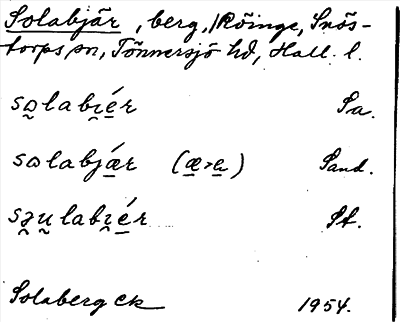 Solabjär, berg, Röinge, Snös-
torps sn, Tönnersjö hd, Hall. l.
sọlabi̯ér Sa.
sɷlabjǽr (æ>e) Sand.
sə̯u̯labi̯ér St.
Solaberg ek 1954.